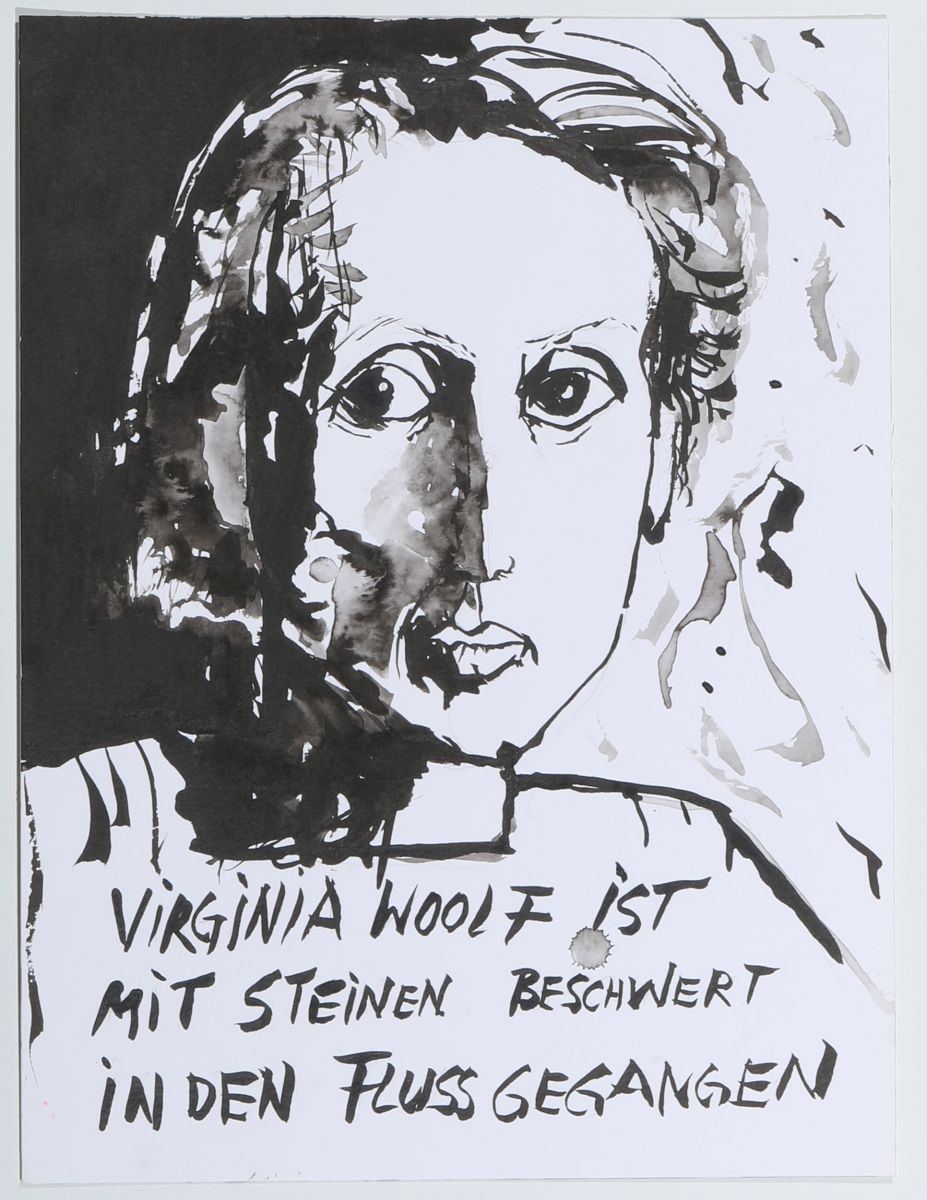 ViRGiNiA WOOLF iST
MiT STEiNEN BESCHWERT
iN DEN FLUSS GEGANGEN